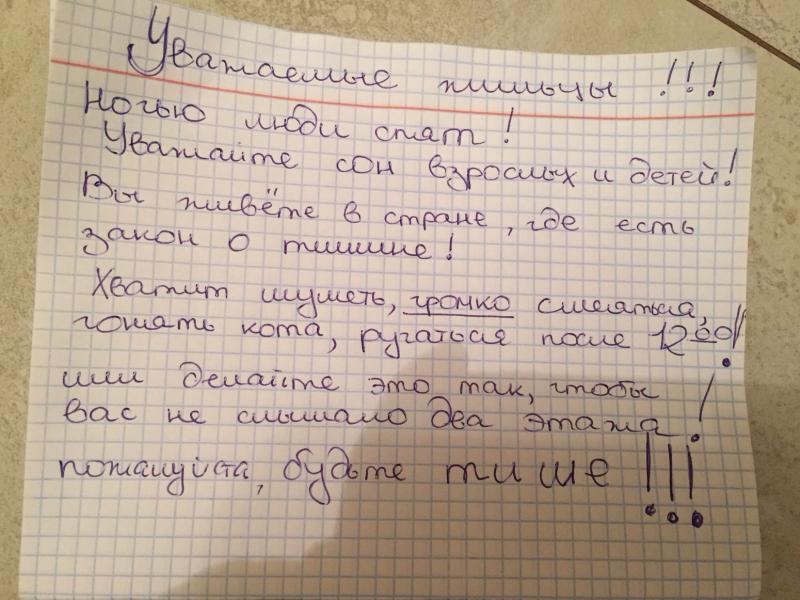 Уважаемые жильцы !!!
Ночью люди спят!
Уважайте сон взрослых и детей!
Вы живёте в стране, где есть
закон о тишине!
Хватит шуметь, громко смеяться,
гонять кота, ругаться после 12 00!
или делайте это так, чтобы
вас не слышало два этажа!
пожалуйста, будьте тише!!!